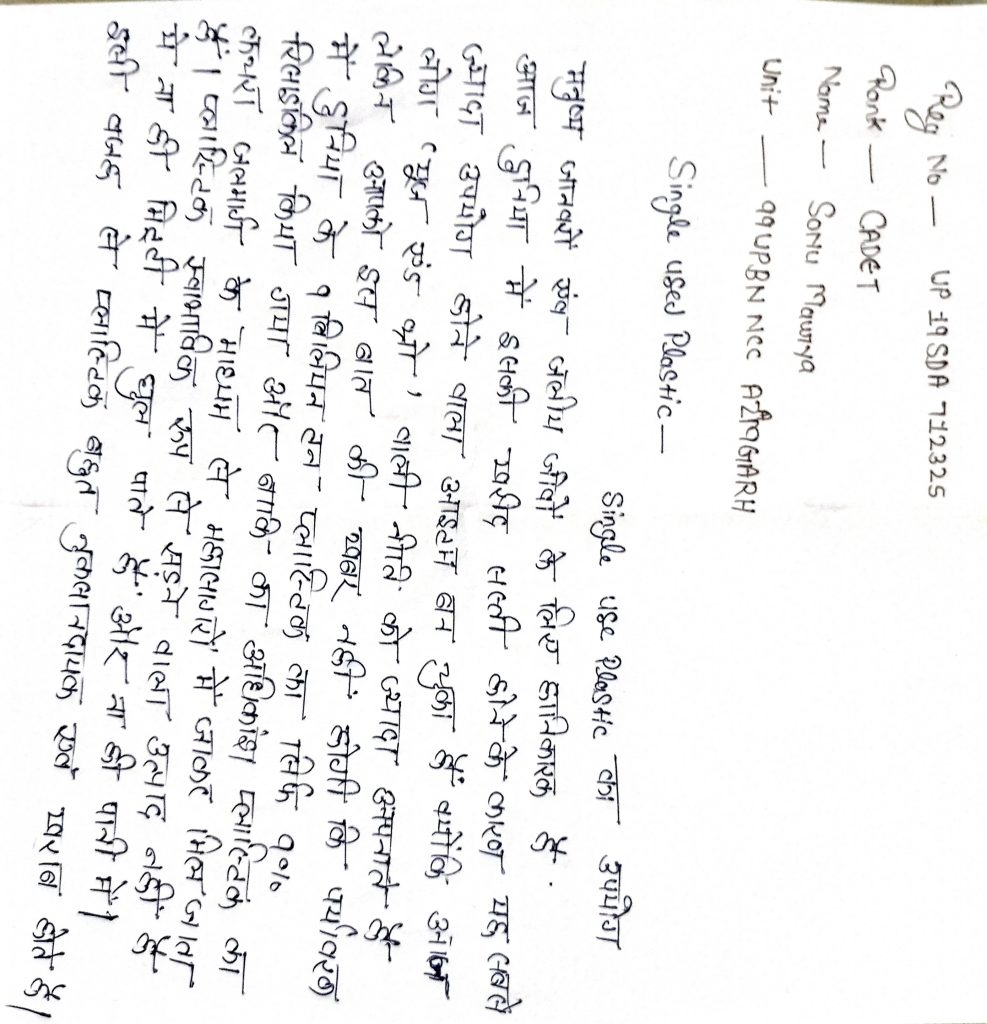 Reg No — UP19SDA712325
Rank — CADET
Name — SONU Maurya
Unit — 99UPBN NCC AZAMGARH
Single used Plastic —
Single use Plastic का उपयोग
मनुष्य जानवरों एंव जलीय जीवों के लिए हानिकारक है.
आज दुनिया में इसकी खरीद सस्ती होने के कारण यह सबसे
ज्यादा उपयोग होने वाला आइटम बन चुका हैं क्योंकि आज
लोग 'यूज एंड थ्रो' वाली नीति को ज्यादा अपनाते हैं
लेकिन आपको इस बात की खबर नहीं होगी कि पर्यावरण
में दुनिया के 9 बिलियन टन प्लास्टिक का सिर्फ 9%
रिसाइकिल किया गया और बाकि का अधिकांश प्लास्टिक का
कचरा जलमार्ग के माध्यम से महासागरों में जाकर मिल जाता
हैं। प्लास्टिक स्वाभाविक रूप से सड़ने वाला उत्पाद नहीं हैं
ये ना ही मिट्टी में घुल पाते हैं और ना ही पानी में।
इसी वजह से प्लास्टिक बहुत नुकसानदायक एवं खराब होते हैं।